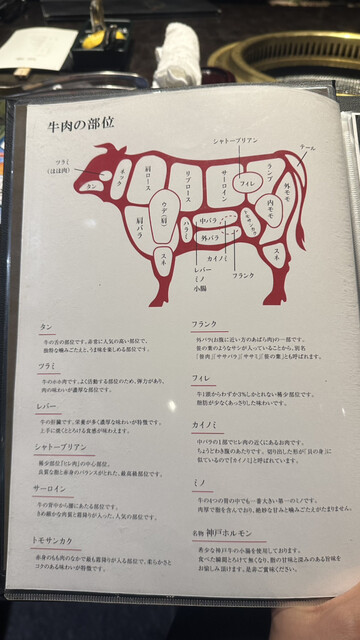 牛肉の部位
シャトーブリアン
テール
ツラミ
(ほほ肉)
タン
ネック
肩ロース
リブロース
サーロイン
フィレ
ランプ
外モモ
内モモ
ウデ(肩)
肩バラ
ハラミ
中バラ
外バラ
トモサンカク
スネ
スネ
カイノミ
フランク
レバー
ミノ
小腸
タン
牛の舌の部位です。非常に人気の高い部位で、
独特な噛みごたえと、うま味を楽しめる部位です。
ツラミ
牛のホホ肉です。よく活動する部位のため、弾力があり、
肉の味わいが濃厚な部位です。
レバー
牛の肝臓です。栄養が多く濃厚な味わいが特徴です。
上手に焼くととろける食感が味わえます。
シャトーブリアン
稀少部位『ヒレ肉』の中心部位。
良質な脂と赤身のバランスがとれた、最高級部位です。
サーロイン
牛の背中から腰にあたる部位です。
きめ細かな肉質と霜降りが入った、人気の部位です。
トモサンカク
赤身のもも肉のなかで最も霜降りが入る部位で、柔らかさと
コクのある味わいが特徴です。
フランク
外バラ(お腹に近い方のあばら肉)の一部です。
笹の葉のようなサシが入っていることから、別名
『笹肉』『ササバラ』『ササミ』『笹の葉』とも呼ばれます。
フィレ
牛1頭からわずか3%しかとれない稀少部位です。
脂肪が少なくあっさりした味わいです。
カイノミ
中バラの1部でヒレ肉の近くにあるお肉です。
ちょうどわき腹のあたりです。切り出した形が「貝の身」に
似ているので『カイノミ』と呼ばれています。
ミノ
牛の4つの胃の中でも一番大きい第一のミノです。
肉厚で脂を含んでおり、絶妙な甘みと噛みごたえがたまりません。
名物 神戸ホルモン
希少な神戸牛の小腸を使用しております。
食べた瞬間とろけて無くなり、脂の甘味と深みのある旨味を
お愉しみ頂けます。是非ご賞味ください。